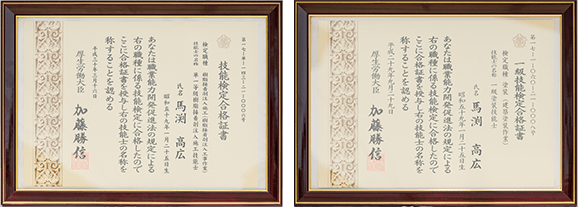 技能検定合格証書
検定職種
氏名 馬渕 高広
昭和五十九年一月二十五日生
あなたは職業能力開発促進法の規定による
右の職種に係る技能検定に合格したので
ここに合格証書を与し右の技能士の名称を
称することを認める
平成三十年三月十六日
厚生労働大臣 加藤勝信
一級技能検定合格証書
検定職種 塗装(建築塗装作業)
技能士の名称 一級塗装技能士
氏名 馬渕 高広
昭和五十九年一月二十五日生
あなたは職業能力開発促進法の規定による
右の職種に係る技能検定に合格したので
ここに合格証書を与し右の技能士の名称を
称することを認める
厚生労働大臣 加藤勝信